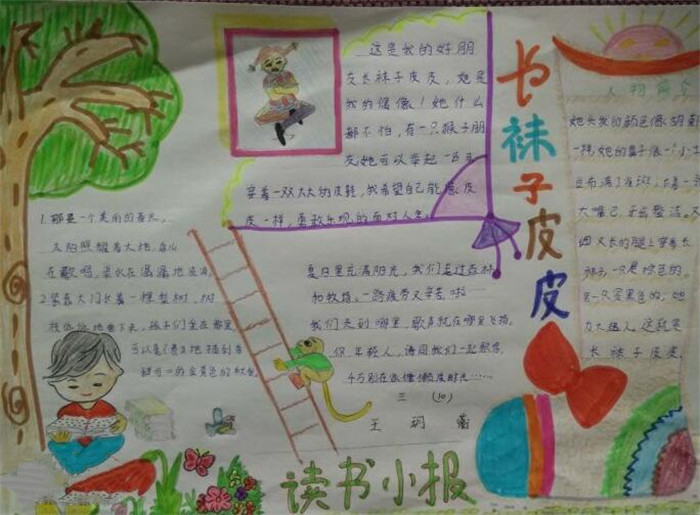 长袜子皮皮
这是我的好朋
友长袜子皮皮，她是
我的偶像！她什么
都不怕，有一只猴子朋
友她可以举起一匹马
穿着一双大大的皮鞋，我希望自己能像皮
皮一样，勇敢乐观的面对人生。
人物简介
她头发的颜色像胡萝
一样，她的鼻子像一个小土
豆布满了雀斑，
大嘴巴，牙齿整洁。
细又长的腿上穿着长
袜子一只是棕色的，
另一只是黑色的，她
力大超人，这就是
长袜子皮皮。
1.那是一个美丽的春天，
太阳照耀着大地，鸟儿
在歌唱，
2.紧靠大门长着一棵型树，树
枝低低地垂下来，孩子们坐在那里
可以毫不费力地摘到香
甜可口的金黄色的
夏日里充满阳光，我们走过森林
和牧场。一路疲劳又辛苦啦
我们走到哪里，歌声就在哪里飞扬。
你年轻人，请同我们一起歌唱，
三（10）
王玥
读书小报